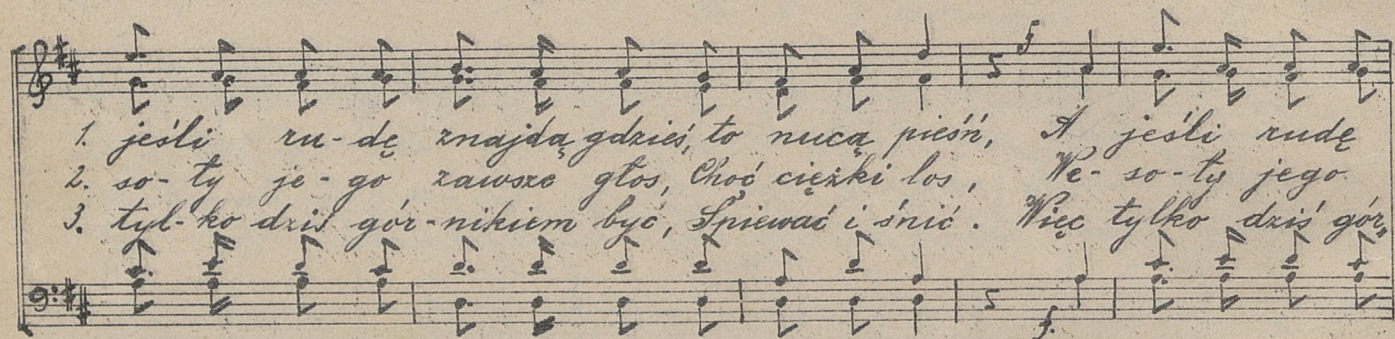 f
1. jeśli ru-dę znajdą gdzieś, to nucą pieśń, A jeśli rudę
2. so-ły je-go zawsze głos, Choć ciężki los, We-so-ły jego
3. tyl-ko dziś gór-nikiem być, Śpiewać i śnić. Więc tylko dziś gór-
f.